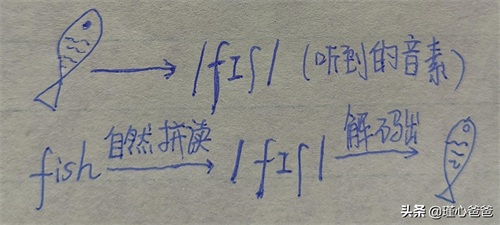 /fɪʃ/ (听到的音素)
自然拼读 解码出
fish /fɪʃ/
头条 @瑾心爸爸